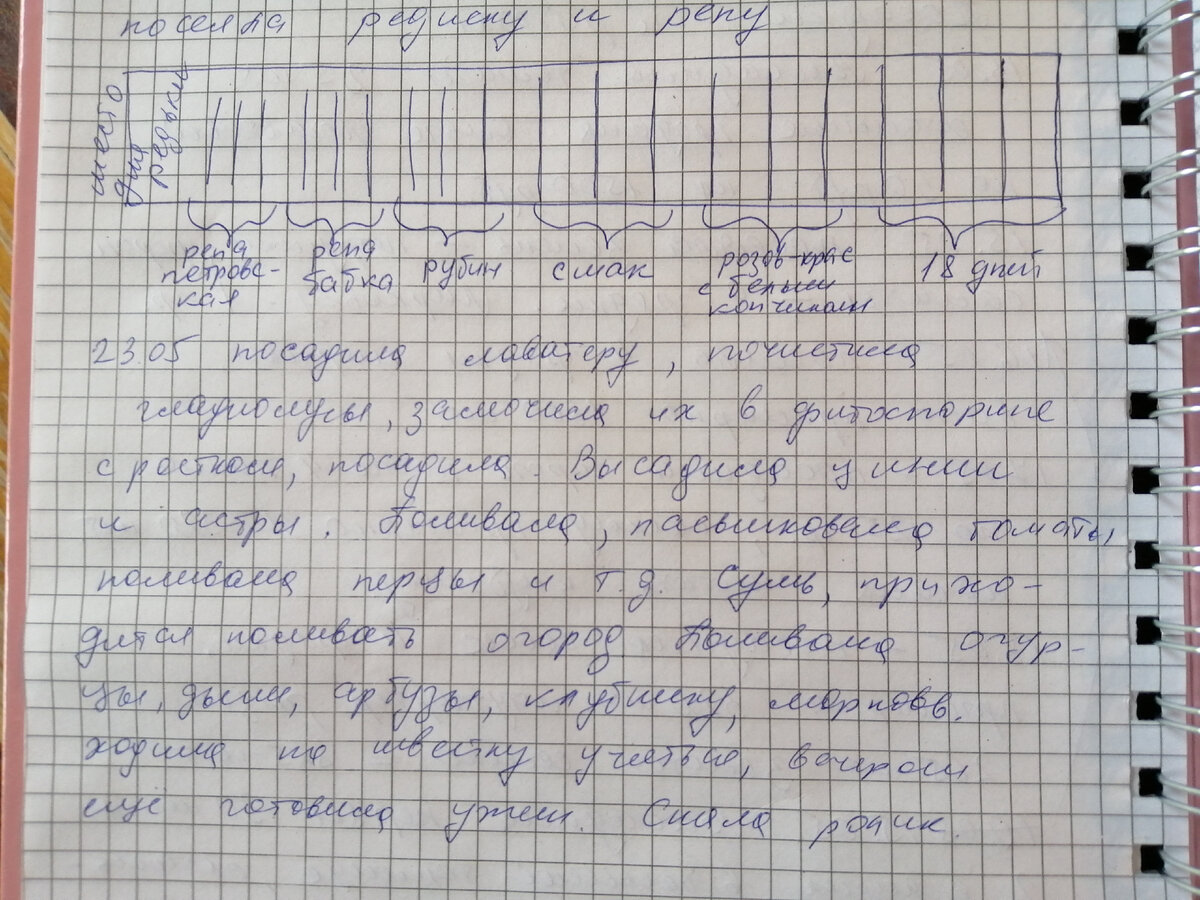 посеяла редиску и репу
место для редьки
репа петровс-
кая
репа бабка
рубин
смак
розов-крас
с белым
кончиком
18 дней
23.05 посадила лаватеру, почистила
гладиолусы, замочила их в фитоспорине
с ростком, посадила. Высадила циннии
и астры. Поливала, пасынковала томаты,
поливала перцы и т.д. Сушь, прихо-
дится поливать огород Поливала огур-
цы, дыни, арбузы, клубнику, морковь.
ходила по учатью, вечером
ещё готовила ужин. Сняла ролик.